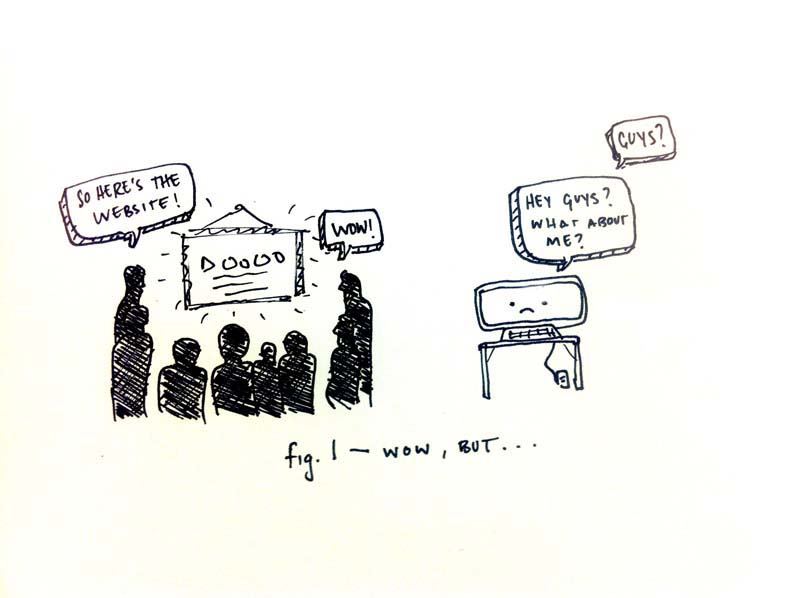 SO HERE'S THE
WEBSITE!
WOW!
GUYS?
HEY GUYS?
WHAT ABOUT
ME?
fig. 1 — WOW, BUT...